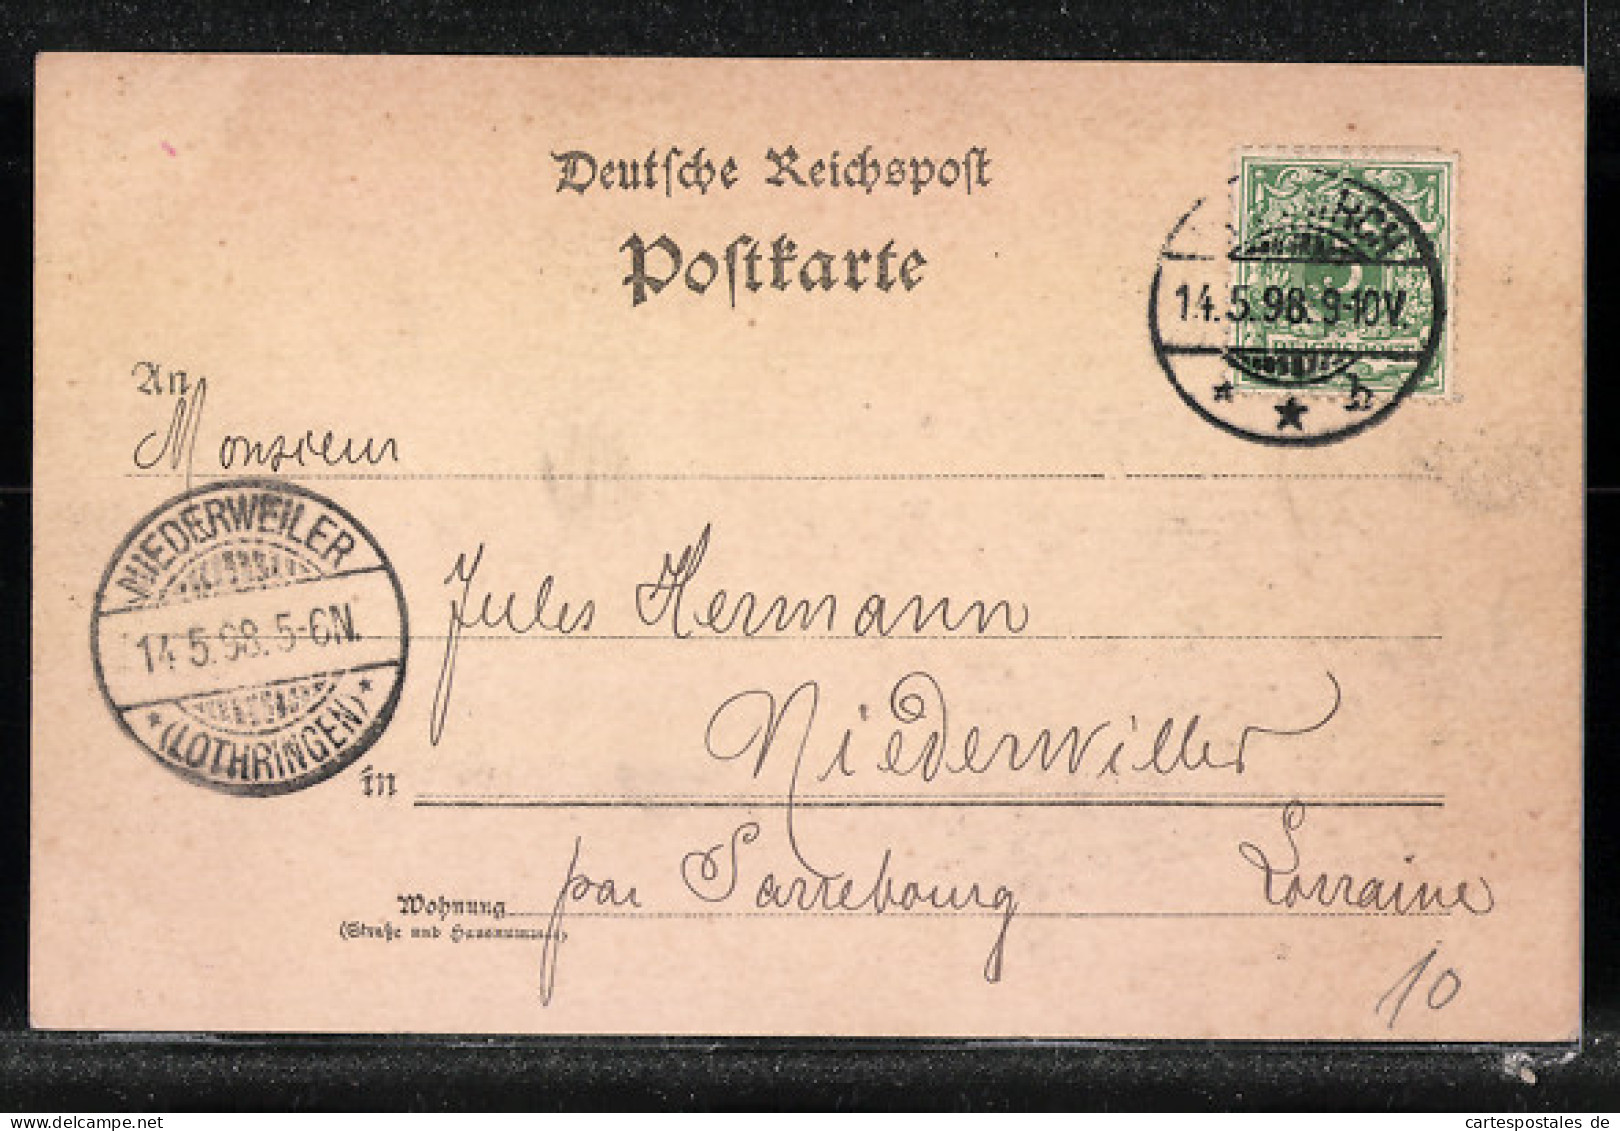 Deutsche Reichspost
Postkarte
RCH
14.5.98. 9-10V.
* * b
5
REICHSPOST
An
Monsieur
NIEDERWEILER
14.5.98. 5-6N.
* (LOTHRINGEN) *
Jules Hermann
in Niederwiller
Wohnung par Sarrebourg Lorraine
(Straße und Hausnummer)
10
cartespostales de